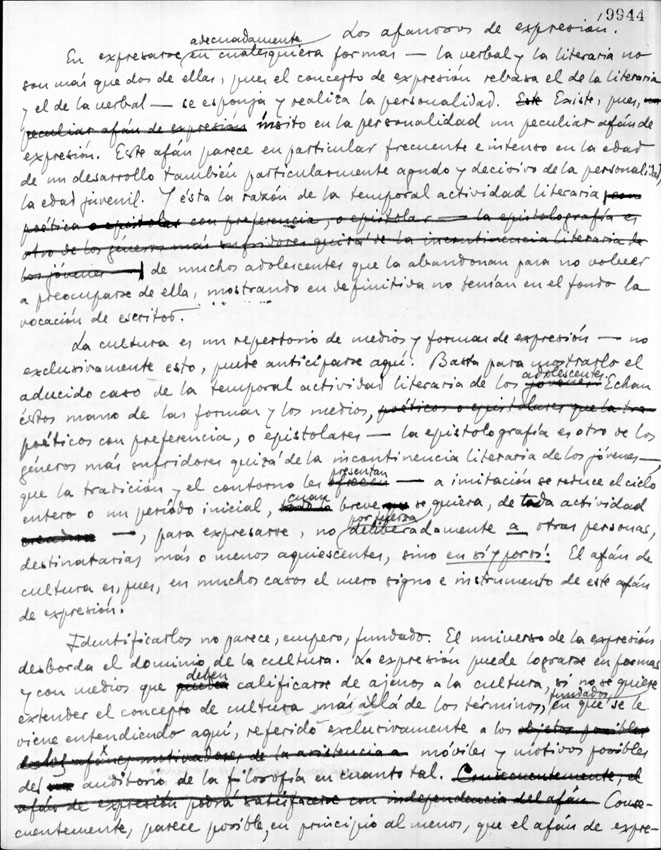 9944
Los afanosos de expresión.
adecuadamente
En expresarse, en cualesquiera formas — la verbal y la literaria no
son más que dos de ellas, pues el concepto de expresión rebasa el de la literaria
y el de la verbal — se esponja y realiza la personalidad. Este Existe, pues,
peculiar afán de expresión ínsito en la personalidad un peculiar afán de
expresión. Este afán parece en particular frecuente e intenso en la edad
de un desarrollo también particularmente agudo y decisivo de la personalidad,
la edad juvenil. Y ésta la razón de la temporal actividad literaria (con
poética o epistolar con preferencia, o epistolar — la epistolografía es
otro de los géneros más sufridores quizá de la incontinencia literaria de
los jóvenes —) de muchos adolescentes que la abandonan para no volver
a preocuparse de ella, mostrando en definitiva no tenían en el fondo la
vocación de escritor.
La cultura es un repertorio de medios y formas de expresión — no
exclusivamente esto, puede anticiparse aquí. Basta para mostrarlo el
adolescentes
aducido caso de la temporal actividad literaria de los jóvenes. Echan
éstos mano de las formas y los medios, poéticos o epistolares que la tra
poéticos con preferencia, o epistolares — la epistolografía es otro de los
géneros más sufridores quizá de la incontinencia literaria de los jóvenes —,
presentan
que la tradición y el contorno les ofrecen — a imitación se reduce el ciclo
cuan
entero o un período inicial, breve que se quiera, de toda actividad
por fuerza
creadora —, para expresarse, no deliberadamente a otras personas,
destinatarias más o menos aquiescentes, sino en sí y por sí. El afán de
cultura es, pues, en muchos casos el mero signo e instrumento de este afán
de expresión.
Identificarlos no parece, empero, fundado. El universo de la expresión
desborda el dominio de la cultura. La expresión puede lograrse en formas
deben
y con medios que pueden calificarse de ajenos a la cultura, si no se quiere
fundados
extender el concepto de cultura más allá de los términos, en que se le
viene entendiendo aquí, referido exclusivamente a los objetos posibles
motivadores de la asistencia a móviles y motivos posibles
del auditorio de la filosofía en cuanto tal. Consecuentemente, el
afán de expresión podrá satisfacerse con independencia del afán Conse-
cuentemente, parece posible, en principio al menos, que el afán de expre-